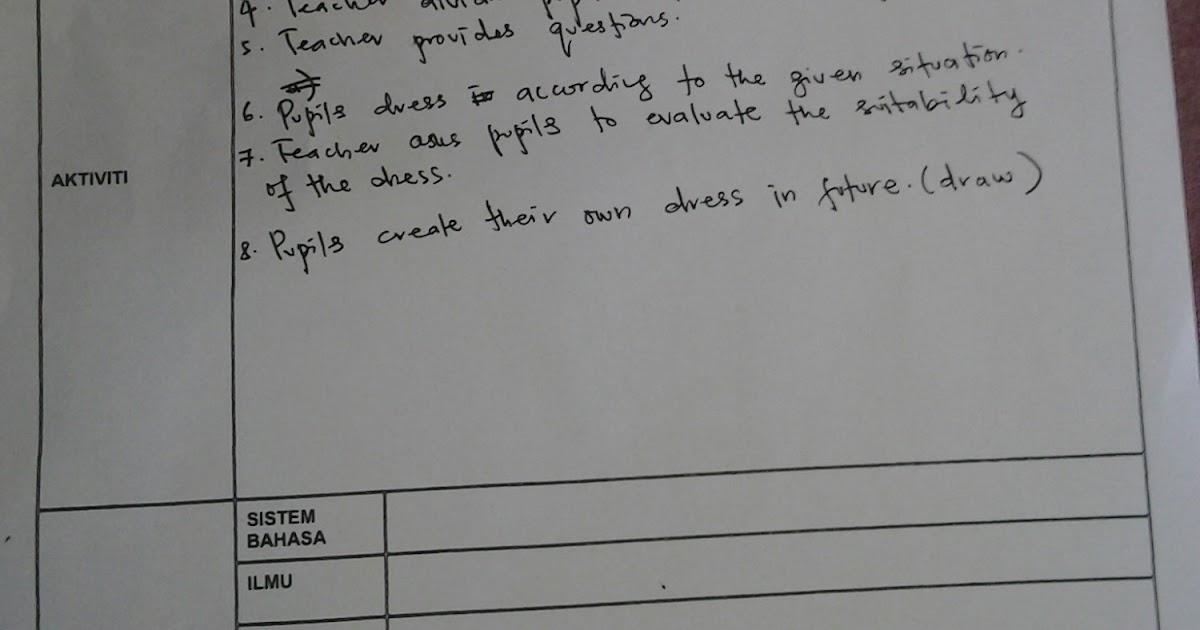 4. Teacher
5. Teacher provides questions.
6. Pupils dress according to the given situation.
7. Teacher asks pupils to evaluate the suitability
of the dress.
8. Pupils create their own dress in future. (draw)
AKTIVITI
SISTEM
BAHASA
ILMU